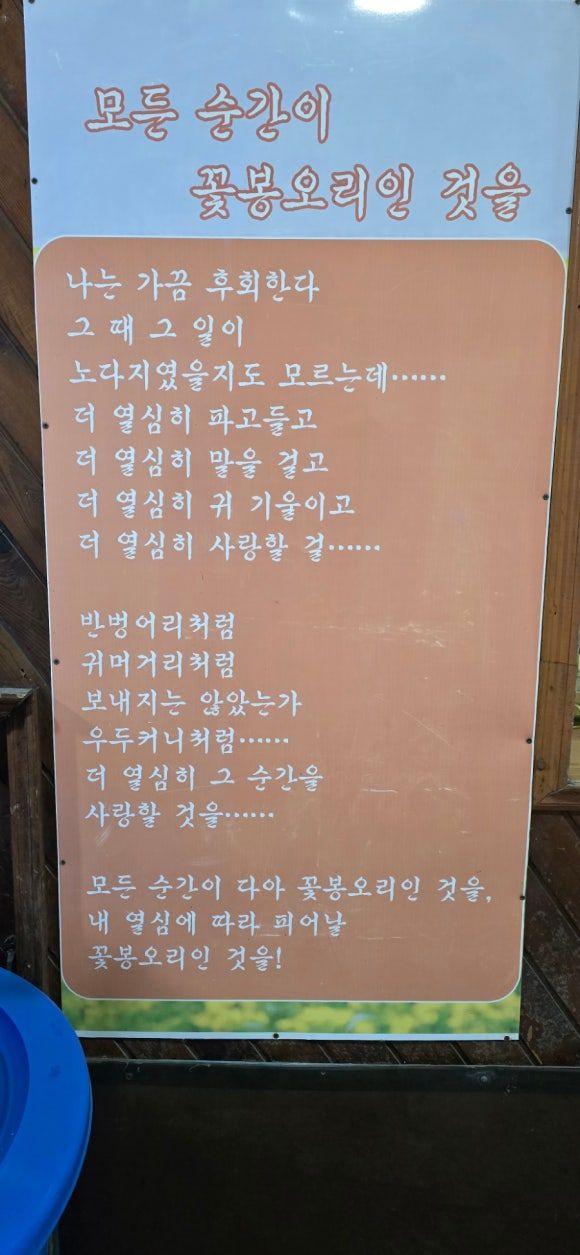 모든 순간이
꽃봉오리인 것을
나는 가끔 후회한다
그 때 그 일이
노다지였을지도 모르는데……
더 열심히 파고들고
더 열심히 말을 걸고
더 열심히 귀 기울이고
더 열심히 사랑할 걸……
반벙어리처럼
귀머거리처럼
보내지는 않았는가
우두커니처럼……
더 열심히 그 순간을
사랑할 것을……
모든 순간이 다아 꽃봉오리인 것을,
내 열심에 따라 피어날
꽃봉오리인 것을!